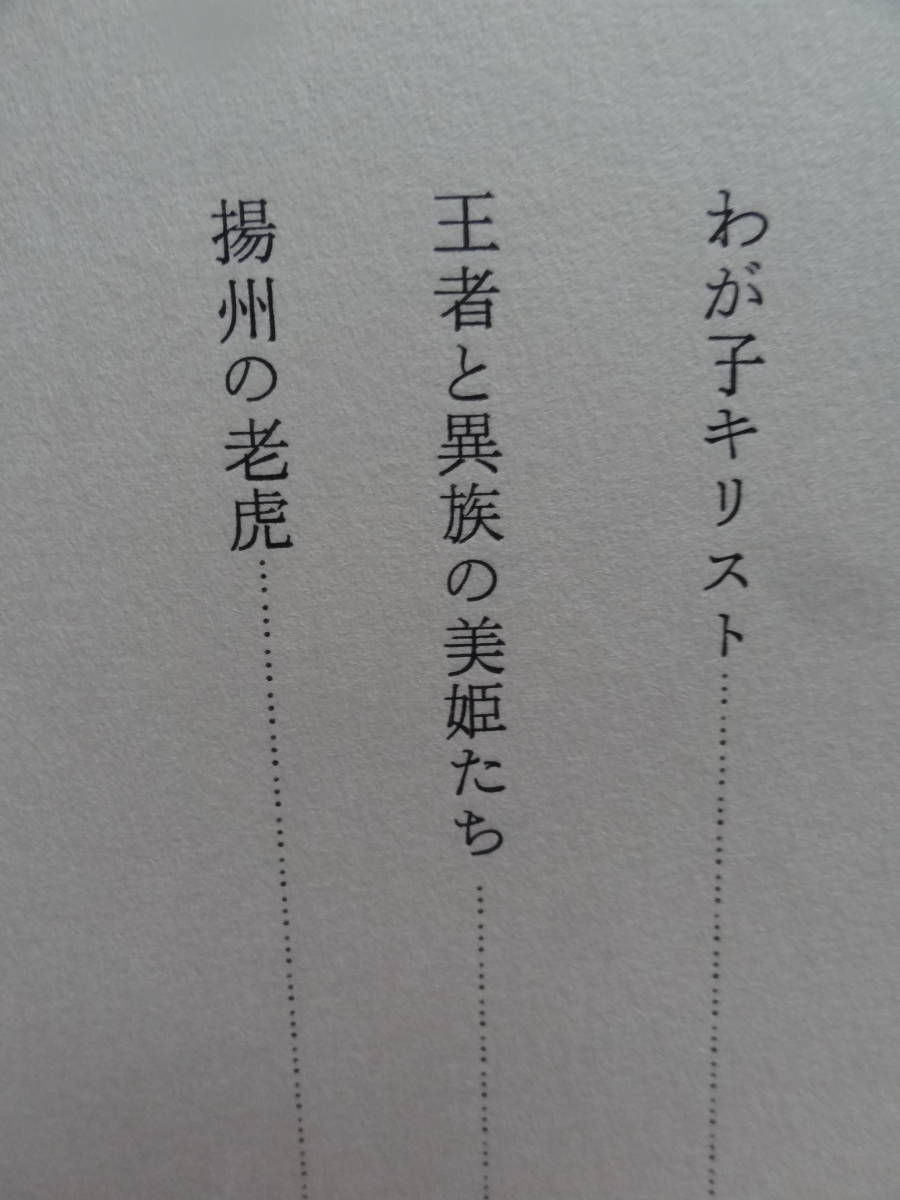 わが子キリスト……………………
王者と異族の美姫たち……………………
揚州の老虎……………………